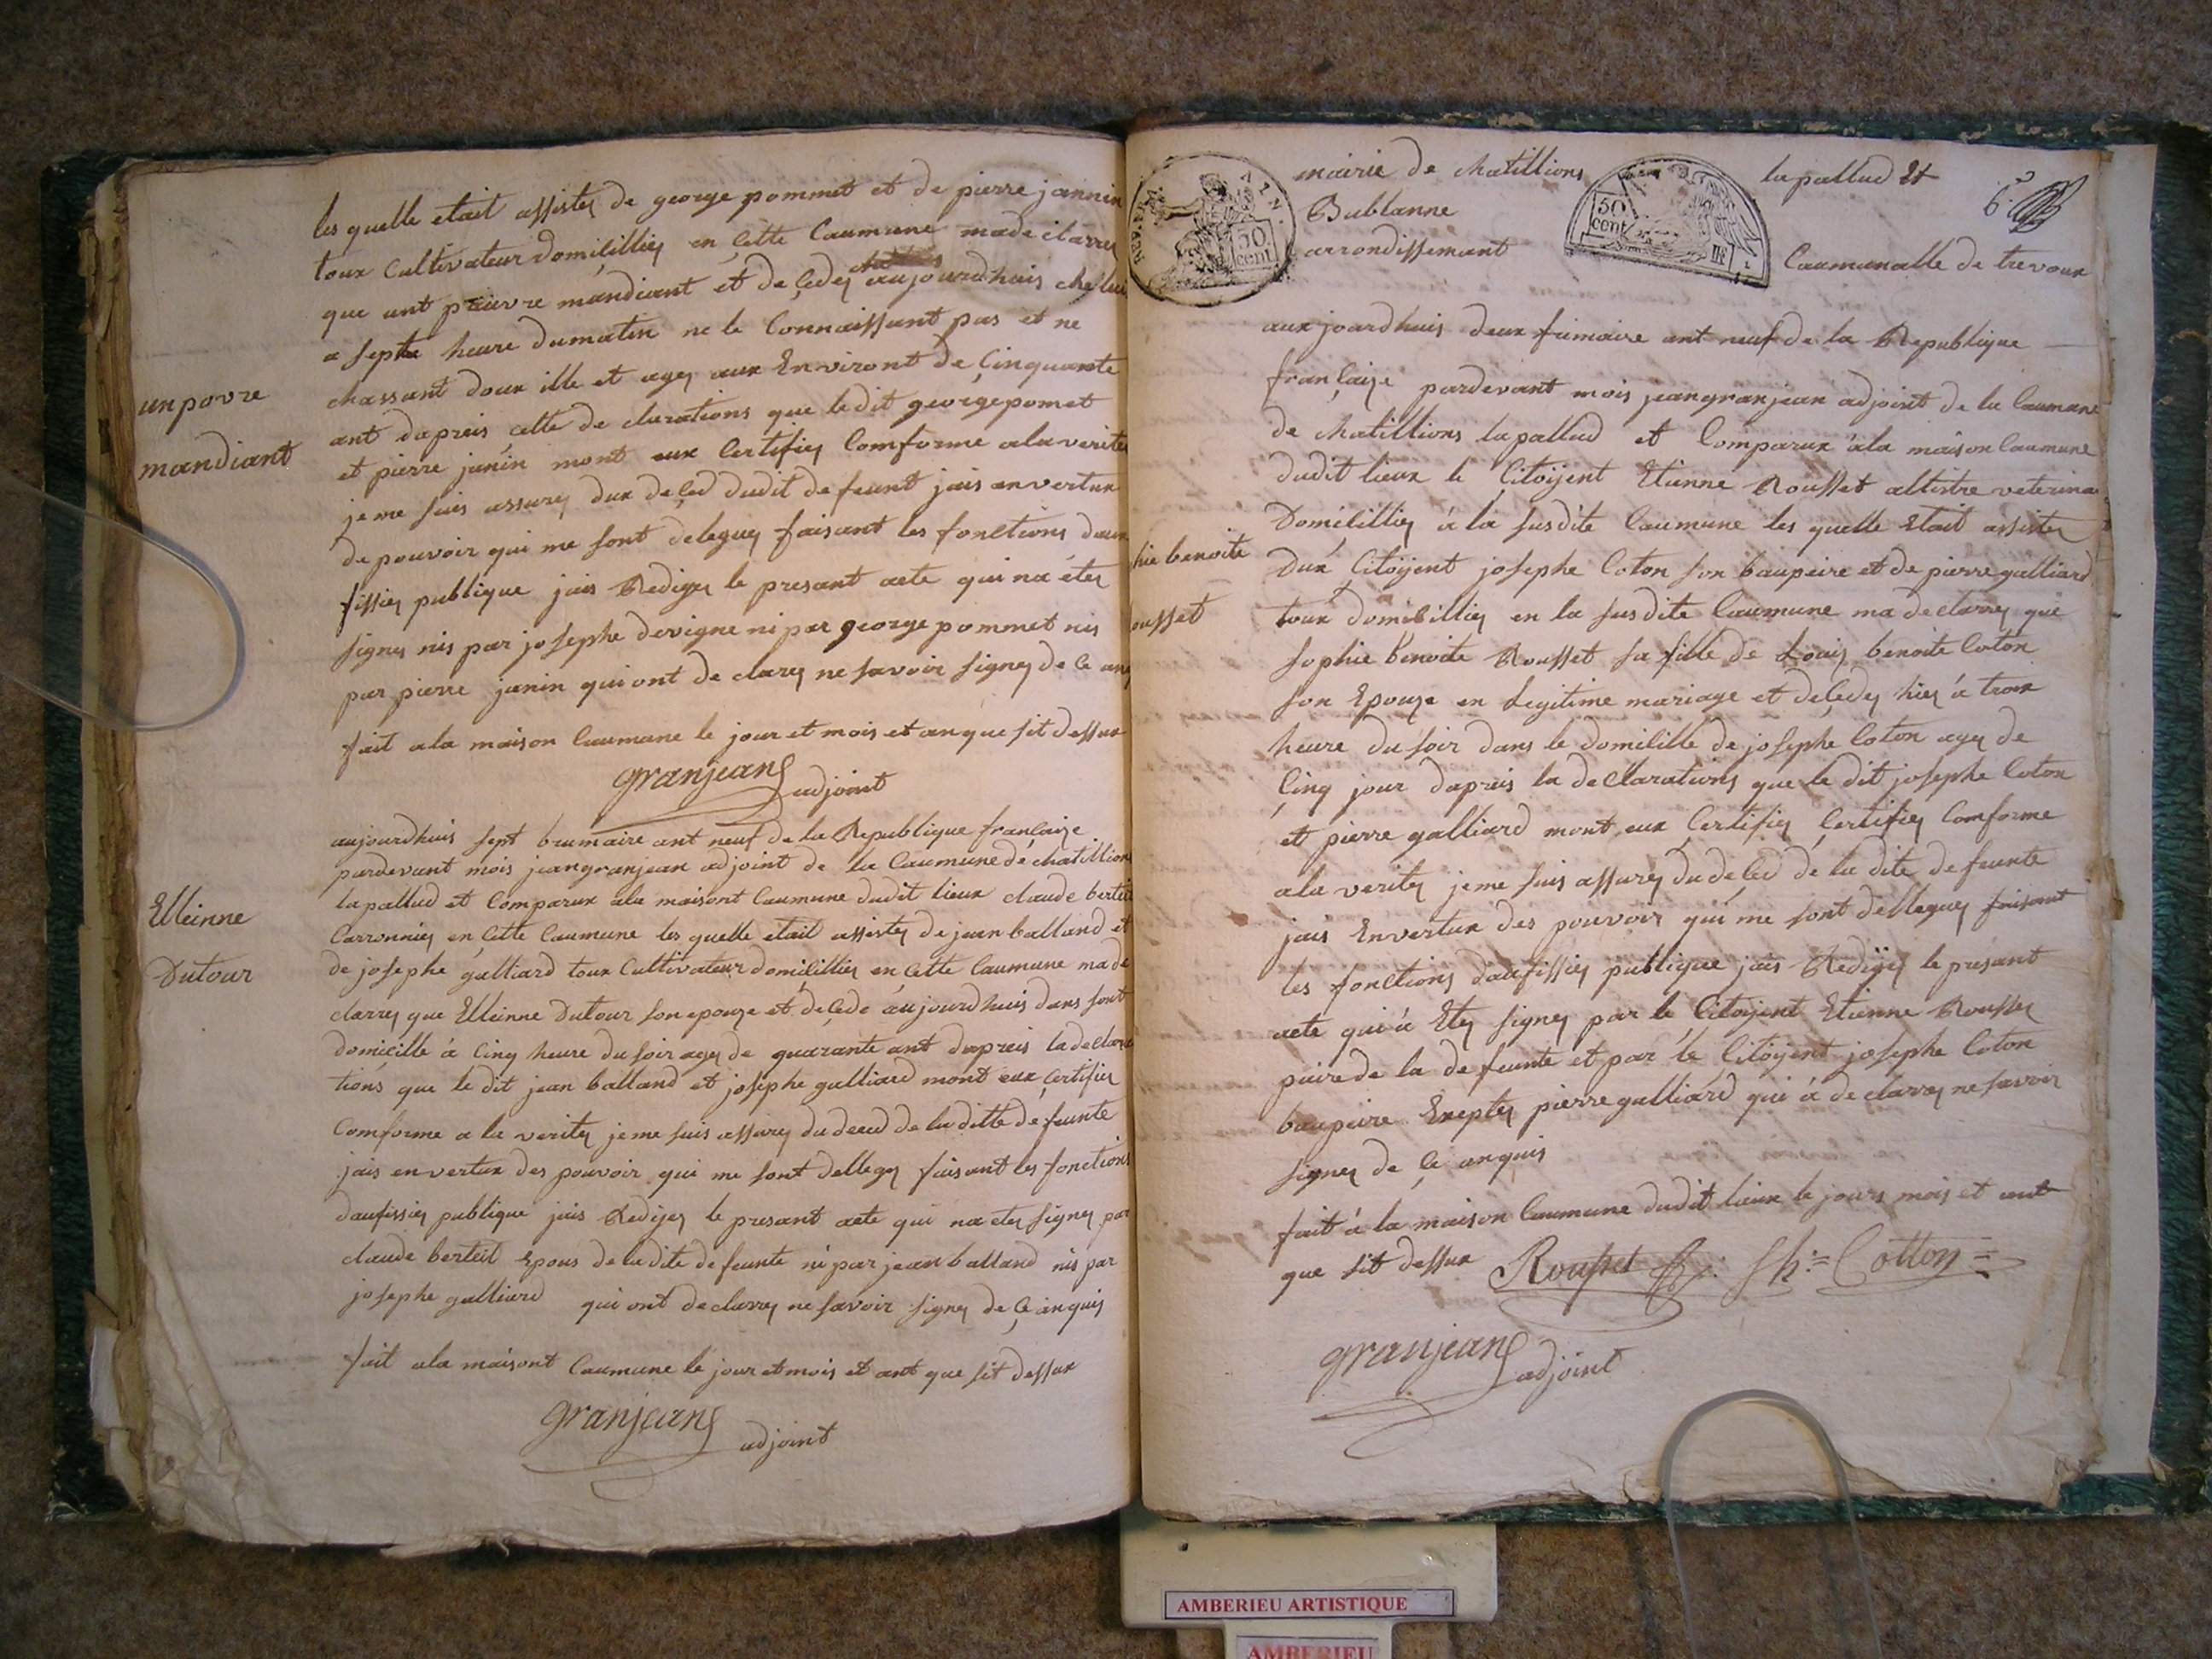 les quelle etait assistey de george pommet et de pierre jannin
toux Cultivateur domicilliey en Cette Caumune ma de clarrey
que unt pauvre mandiant et de Cedey aujourdhuis che lui
a septe heure du matin ne le Connaissant pas et ne
chassant doux ille et agey aux Environt de Cinquante
ant dapreis cette de clarations que ledit george pomet
et pierre janin mont eux Certifiey Comforme a la veritey
je me suis assurey dux deced dudit defeunt jais en vertux
de pouvoir qui me sont deleguey faisant les fonctions daux
fissiey publique jais Redigey le presant acte qui na étey
signey nis par josephe devigne ni par george pommet nis
par pierre janin qui ont de clarey ne savoir signey de Ce an
fait a la maison Caumune le jour et mois et an que sit dessux
granjean
adjoint
un povre
mandiant
aujourdhuis sept brumaire ant neuf de la Republique francaize
pardevant mois jean granjean adjoint de la Caumune de chatillion
la pallud et Comparux a la maisont Caumune dudit lieux claude berteil
Carronniey en Cette Caumune les quelle etait assistey de jean balland et
de josephe galliard toux Cultivateur domicilliey en Cette Caumune ma de
clarrey que Elleinne Dutour son epouze et décéde aujourdhuis dans sont
domicille à Cinq heure du soir agey de quarante ant dapreis la declara
tions que le dit jean balland et josephe galliard mont eux Certifier
Comforme a la veritey je me suis assurey du deced de la ditte defeunte
jais en vertux des pouvoir qui me sont dellegey faisant les fonctions
daufissiey publique jais Redigey le presant acte qui na etey signey par
claude berteil Epous de la dite defeunte ni par jean balland nis par
josephe galliard qui ont declarrey ne savoir signey de Ce anquis
fait a la maisont Caumune le jour et mois et ant que sit dessux
granjean
adjoint
Elleinne
Dutour
mairie de chatillions la pallud Et
Bublanne
arrondissement Caumunalle de trevoux
50
cent
50
cent
6
aux jourdhuis deux frimaire ant neuf de la Republique
françaize pardevant mois jean granjean adjoint de la Caumune
de chatillions la pallud et Comparux à la maison Caumune
dudit lieux le Citoyent Etienne Rousset altistre veterina
Domicilliey à la susdite Caumune les quelle Etait assistey
Dux Citoyent josephe Coton son baupeire et de pierre galliard
toux domicilliey en la susdite Caumune ma declarrey que
sophie benoite Rousset sa fille de Louis benoite Coton
son Epouze en Legitime mariage et décedey hiey à troix
heure du soir dans le domicille de josephe Coton agey de
Cinq jour dapreis la decllarations que le dit josephe Coton
et pierre galliard mont eux Certifiey Certifiey Comforme
a la veritey je me suis assurey du deced de la dite defeunte
jais Envertux des pouvoir qui me sont delleguey faisant
les fonctions daufissiey publique jais Redigey le presant
acte qui à Etey signey par le Citoyent Etienne Roussey
paire de la defeunte et par le Citoyent josephe Coton
baupeire Exeptey pierre galliard qui à de clarrey ne savoir
signey de Ce anquis
fait à la maison Caumune dudit lieux le jours mois et ant
que sit dessux Rousset Cotton
granjean
adjoint
hie benoite
ousset
AMBERIEU ARTISTIQUE
AMBERIEU